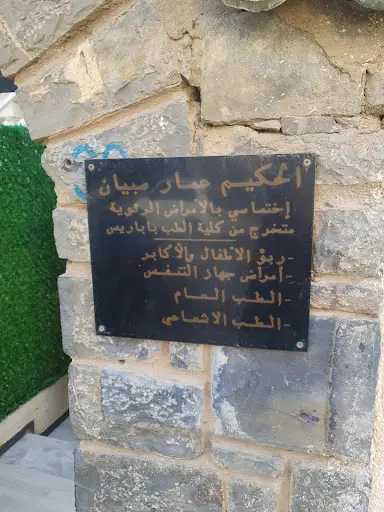 الحكيم عمار صبيان
إختصاصي بالأمراض الرئوية
متخرج من كلية الطب بباريس
- ربو الأطفال والأكابر
- أمراض جهاز التنفس
- الطب العام
- الطب الاشعاعي